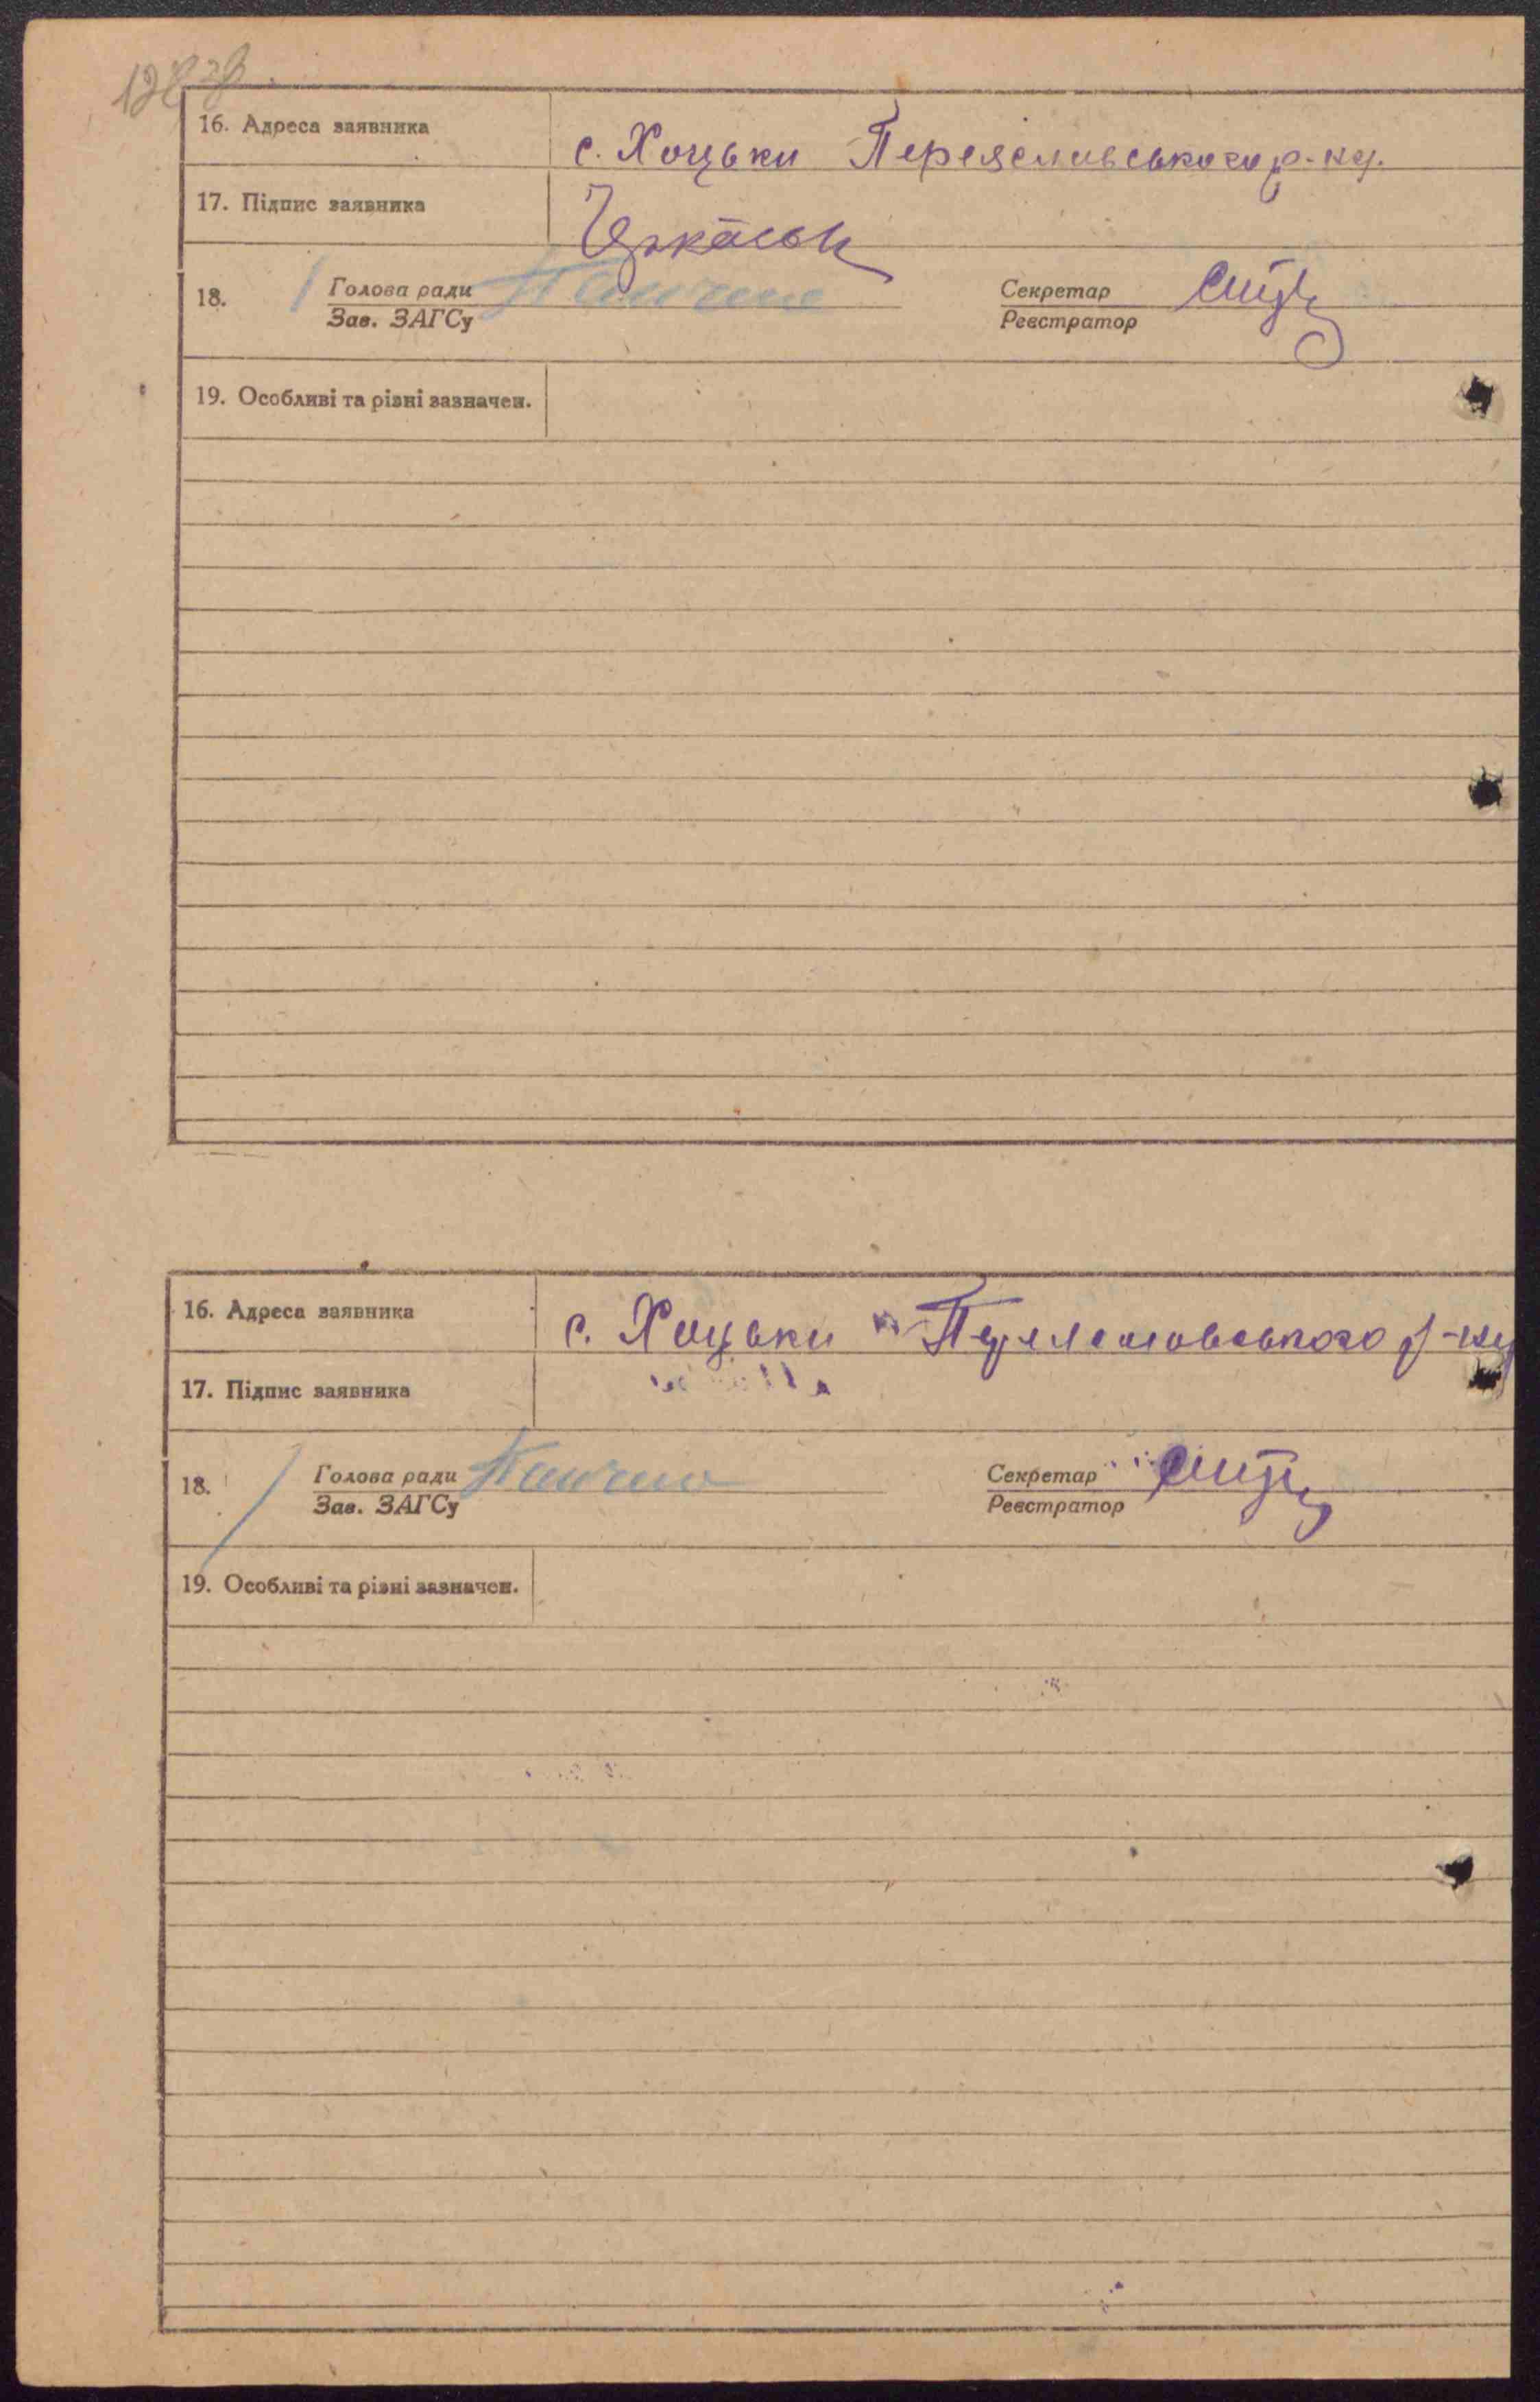 16. Адреса заявника с. Хоцьки Переяславського р-ну.
17. Підпис заявника
18. Голова ради Секретар
Зав. ЗАГСу Реєстратор
19. Особливі та різні зазначен.
16. Адреса заявника с. Хоцьки Переяславського р-ну
17. Підпис заявника
18. Голова ради Секретар
Зав. ЗАГСу Реєстратор
19. Особливі та різні зазначен.